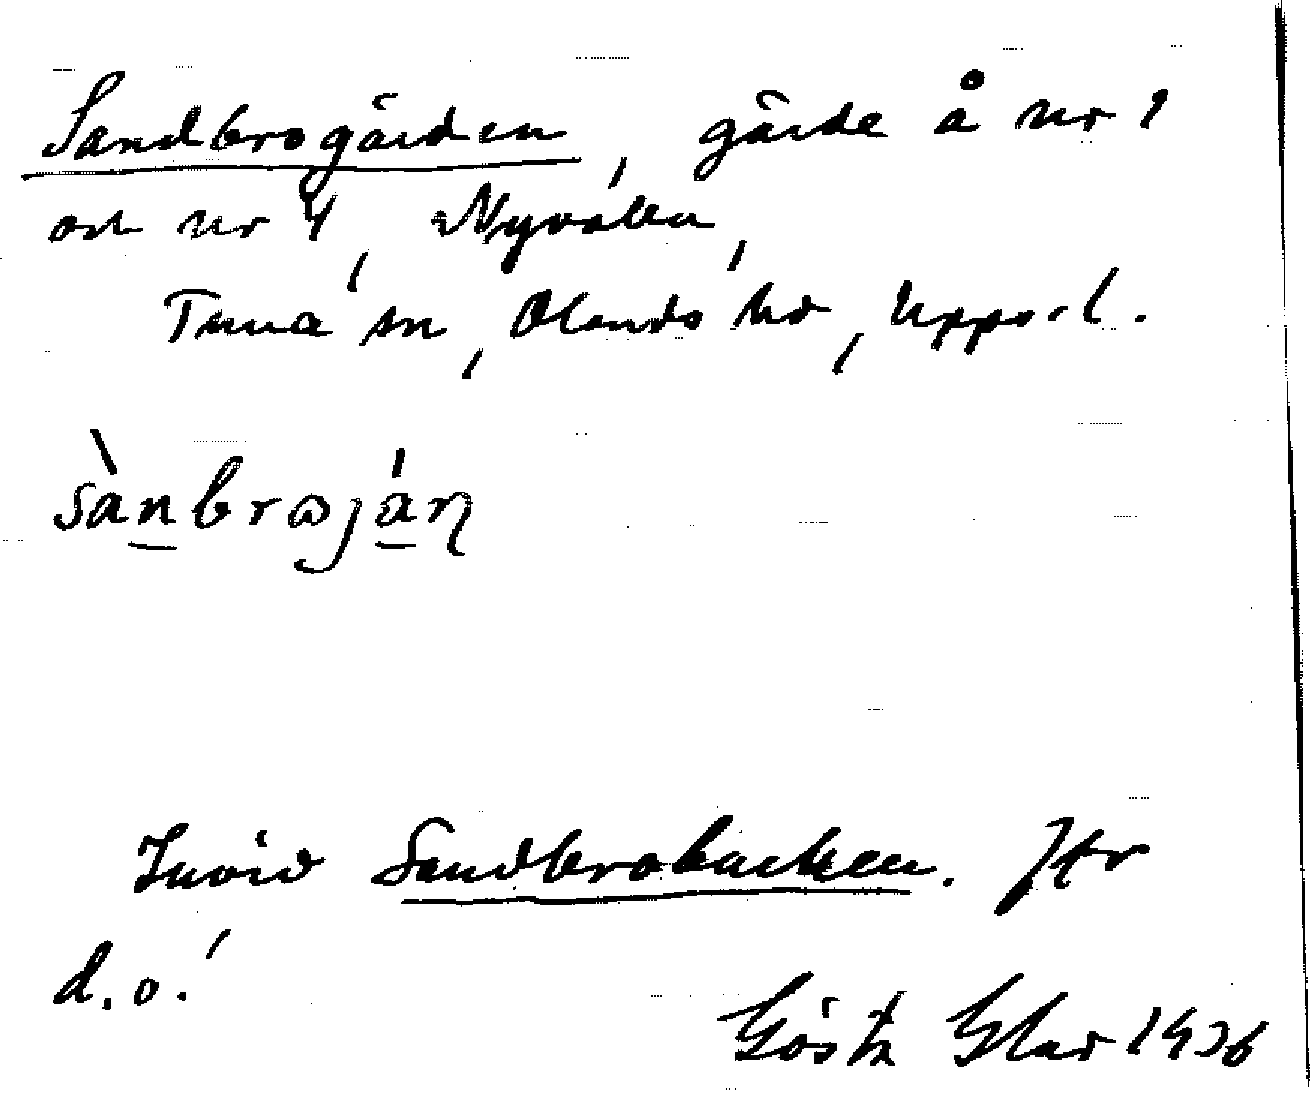 Sandbrogärden, gärde å nr 1
och nr 4, Nyvälla,
Tuna sn, Olands hd, Uppsl.
sànbrωjáṇ
Invid Sandbrobacken. Jfr
d.o.!
Gösta Elar 1936